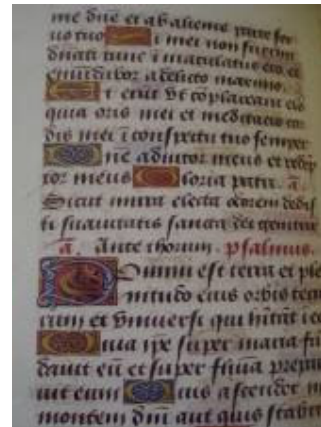 me dñe et ab alienis parce ser
uo tuo i mei non fuerint
dñati tunc i maculatus ero et
emũdabor a delicto maximo.
t erũt vt cõplaceant elo
quia oris mei et meditatio cor
dis mei ĩ conspectu tuo semper
ñe adiutor meus et redẽp
tor meus loria patri. a.
Sicut mirra electa odorem dedis
ti suauitatis sancta dei genitrix
a. Ante thorum. psalmus.
Domini est terra et ple
nitudo eius orbis terra
rum et vniuersi qui hĩtãt ĩ eo
uia ip̃e super maria fũ
dauit eũ et super flũia prepa
uit eum uis ascendet in
montem dñi aut quis stabit